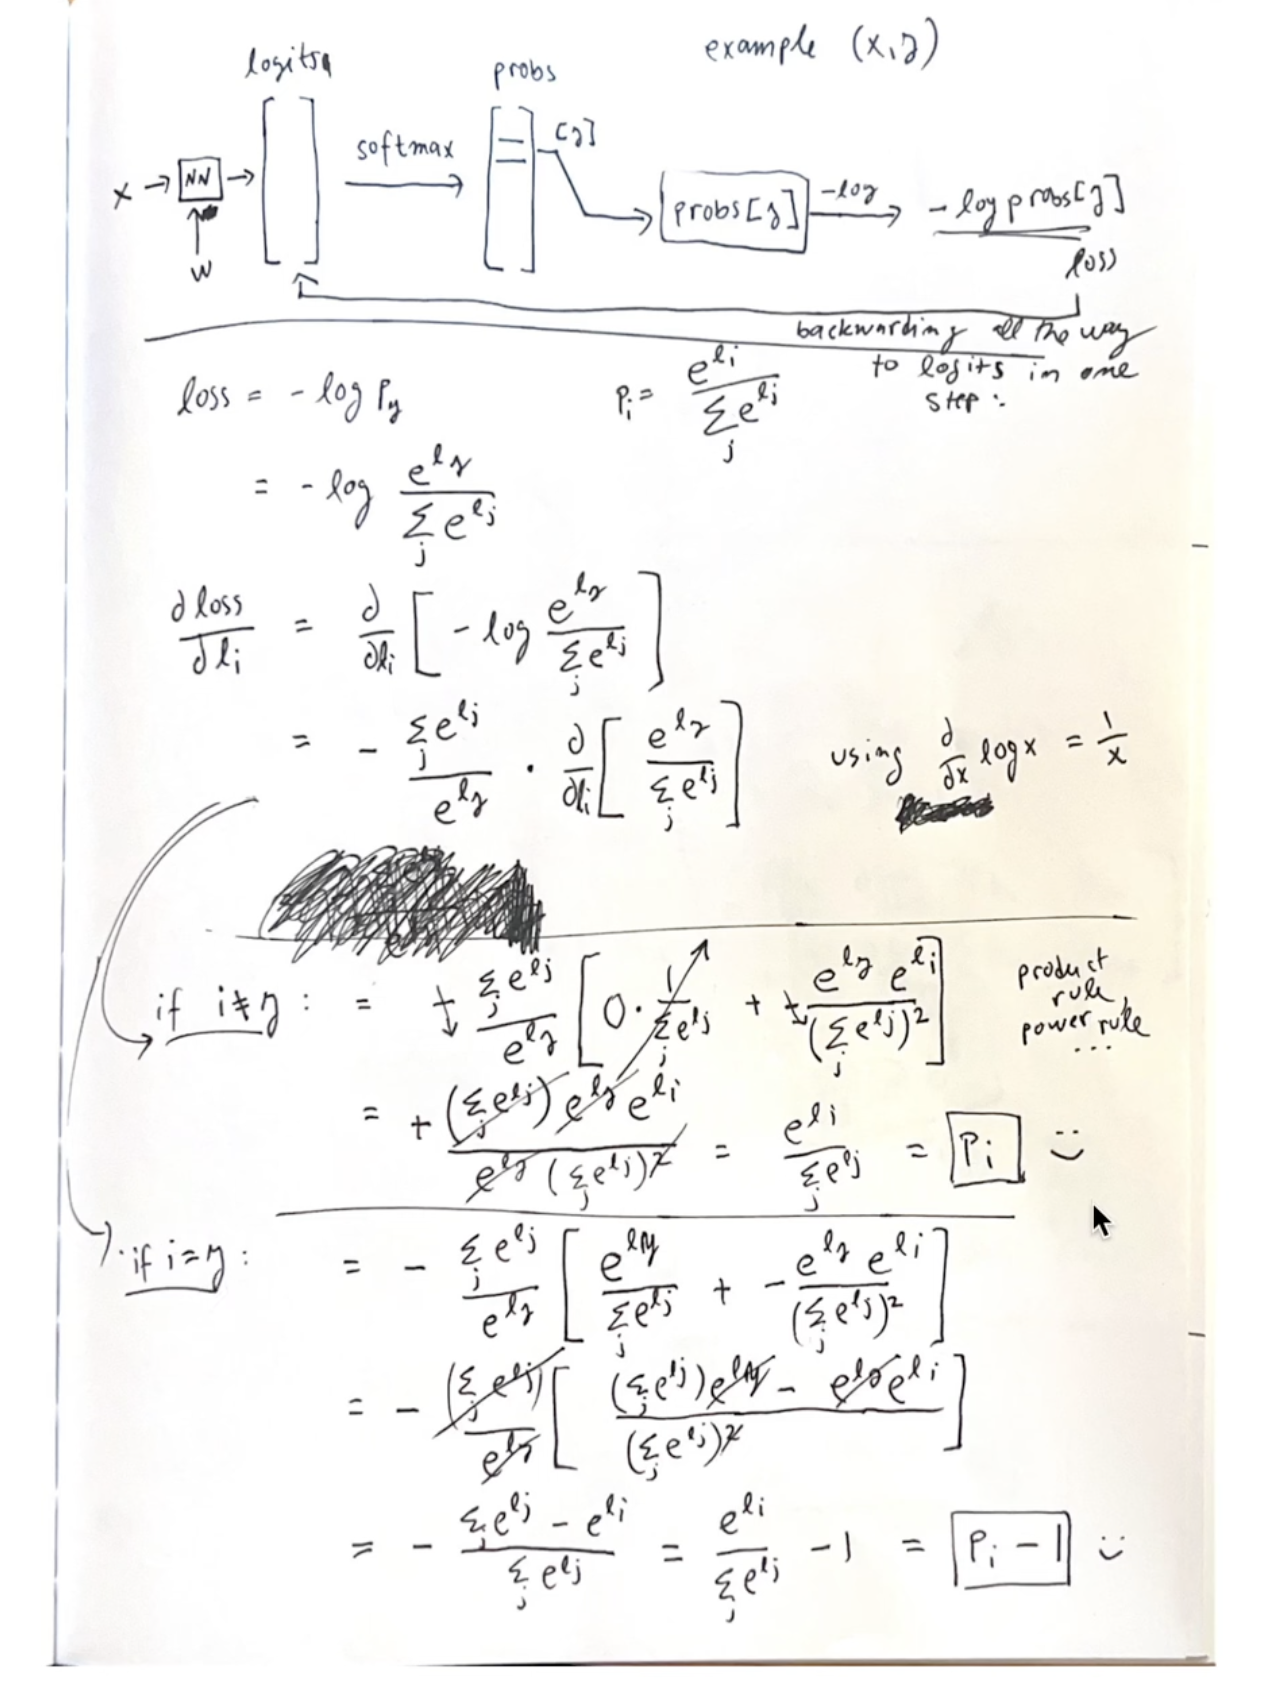 example (x,y)
logits
probs
x → NN →
softmax
[y]
probs[y]
-log
- log probs[y]
w
loss
backwarding all the way
to logits in one
step:
loss = - log P_y
P_i = e^{l_i} / Σ_j e^{l_j}
= - log e^{l_y} / Σ_j e^{l_j}
∂loss/∂l_i = ∂/∂l_i [ - log e^{l_y} / Σ_j e^{l_j} ]
= - Σ_j e^{l_j} / e^{l_y} · ∂/∂l_i [ e^{l_y} / Σ_j e^{l_j} ]
using ∂/∂x log x = 1/x
if i≠y : = + Σ_j e^{l_j} / e^{l_y} [ 0 · 1 / Σ_j e^{l_j} + + e^{l_y} e^{l_i} / (Σ_j e^{l_j})^2 ]
product
rule,
power rule
...
= + (Σ_j e^{l_j}) e^{l_y} e^{l_i} / e^{l_y} (Σ_j e^{l_j})^2 = e^{l_i} / Σ_j e^{l_j} = P_i :)
if i=y : = - Σ_j e^{l_j} / e^{l_y} [ e^{l_y} / Σ_j e^{l_j} + - e^{l_y} e^{l_i} / (Σ_j e^{l_j})^2 ]
= - (Σ_j e^{l_j}) / e^{l_y} [ (Σ_j e^{l_j}) e^{l_y} - e^{l_y} e^{l_i} / (Σ_j e^{l_j})^2 ]
= - Σ_j e^{l_j} - e^{l_i} / Σ_j e^{l_j} = e^{l_i} / Σ_j e^{l_j} - 1 = P_i - 1 :)